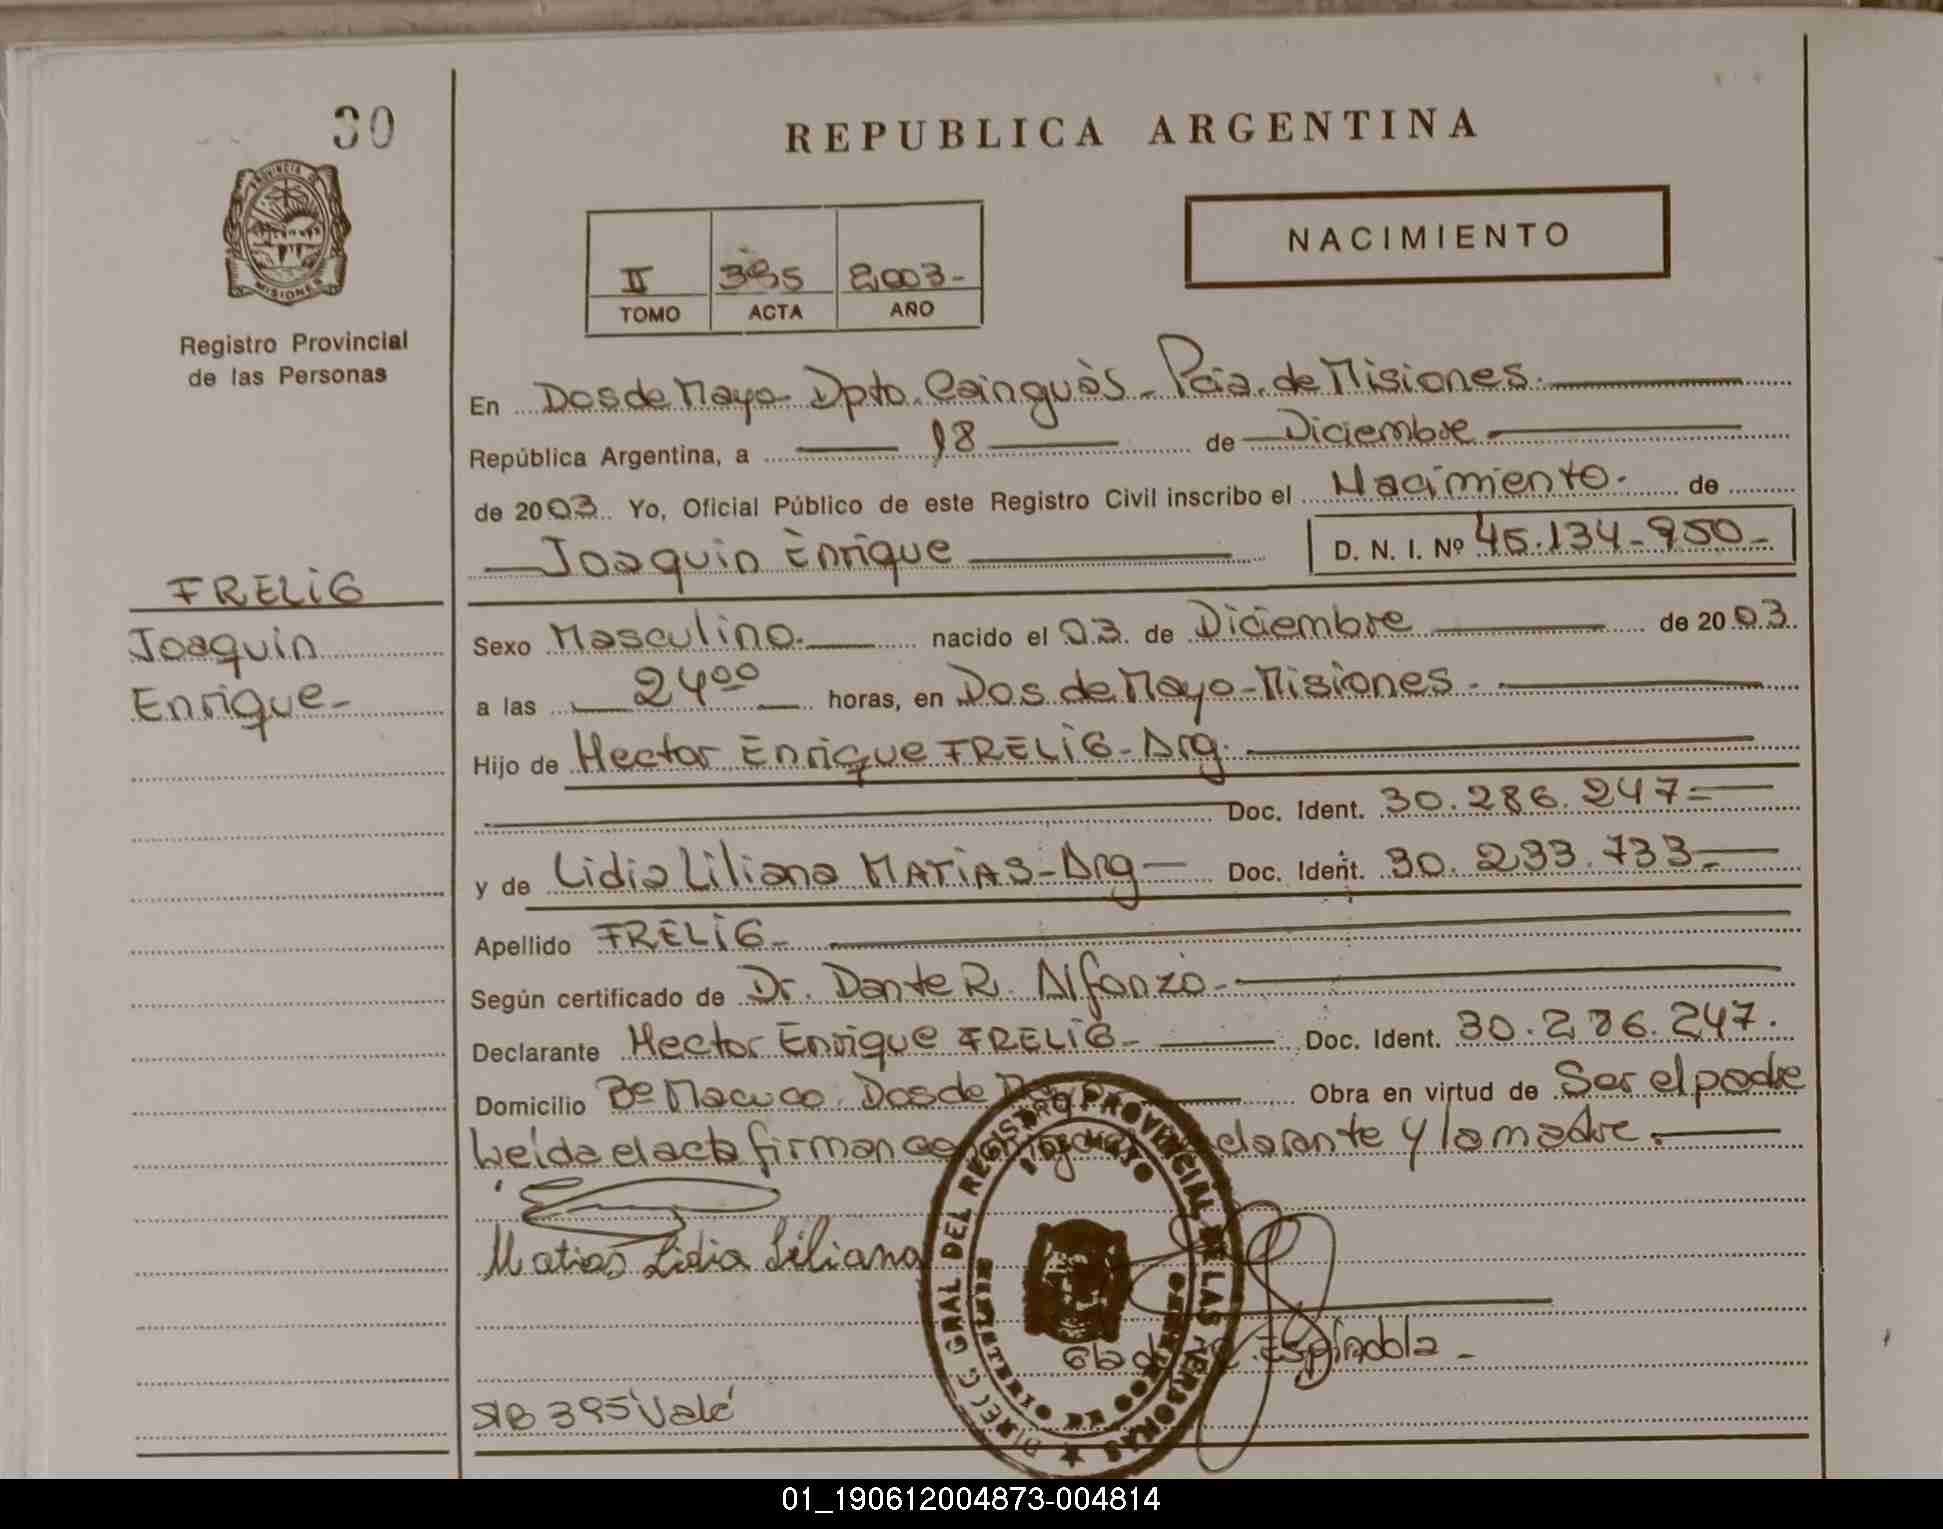 30
REPUBLICA ARGENTINA
NACIMIENTO
II 395 2.003-
TOMO ACTA AÑO
PROVINCIA DE MISIONES
Registro Provincial
de las Personas
En Dos de Mayo Dpto. Cainguàs - Pcia. de Misiones.
República Argentina, a 18 de Diciembre
de 2003. Yo, Oficial Público de este Registro Civil inscribo el Nacimiento. de
Joaquin Enrique D. N. I. Nº 45.134-950-
FRELiG
Joaquin
Enrique-
Sexo Masculino. nacido el 03. de Diciembre de 2003.
a las 24⁰⁰ horas, en Dos de Mayo-Misiones-
Hijo de Hector Enrique FRELiG-Arg.
Doc. Ident. 30.286.247=
y de Lidia Liliana MATiAS-Arg Doc. Ident. 30.233.733-
Apellido FRELiG-
Según certificado de Dr. Dante R. Alfonzo-
Declarante Hector Enrique FRELiG- Doc. Ident. 30.286.247.
Domicilio Bº Macuco. Dos de Obra en virtud de Ser el padre
Leída el acta firman clarante y la madre.
Matias Lidia Liliana
DIREC. GRAL DEL REGISTRO PROVINCIAL DE LAS PERSONAS
DOS DE MAYO
Espíndola-
S/B 395 Vale
01_190612004873-004814